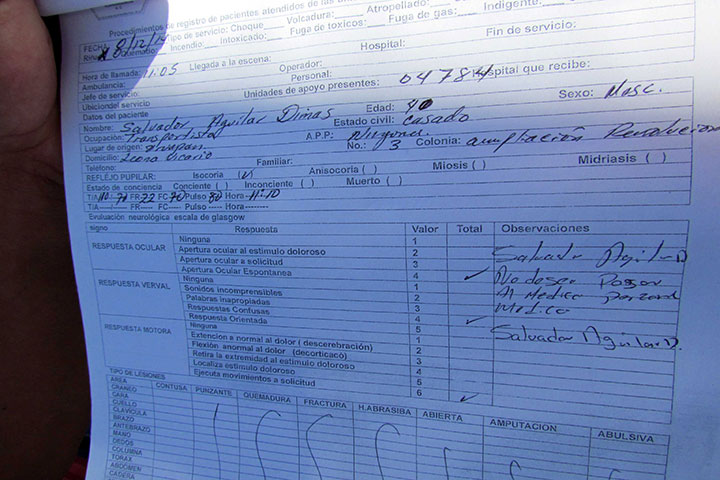 Procedimientos de registro de pacientes atendidos de las
FECHA 8/12/14 Tipo de servicio: Choque___ Volcadura:___ Atropellado___
Incendio:___ Intoxicado:___ Fuga de toxicos:___ Fuga de gas:___ Indigente:
Hora de llamada: 11:05 Llegada a la escena: Hospital: Fin de servicio:
Ambulancia: Operador:
Jefe de servicio: Personal:
Ubicion del servicio Unidades de apoyo presentes: 04784 Hospital que recibe:
Datos del paciente
Nombre: Salvador Aguilar Dimas Edad: 40 Sexo: Masc.
Ocupación: Transportista Estado civil: Casado
Lugar de origen: A.P.P.: Ninguna
Domicilio: Leona Vicario No.: 3 Colonia: ampliación Revolucion
Teléfono: Familiar:
REFLEJO PUPILAR: Isocoria ( ) Anisocoria ( ) Miosis ( ) Midriasis ( )
Estado de conciencia Conciente ( ) Inconciente ( ) Muerto ( )
T/A 110/70 FR 22 FC 70 Pulso 80 Hora 11:10
T/A FR FC Pulso Hora
Evaluación neurológica escala de glasgow
signo Respuesta Valor Total Observaciones
RESPUESTA OCULAR
Ninguna 1
Apertura ocular al estimulo doloroso 2
Apertura ocular a solicitud 3
Apertura Ocular Espontanea 4 ✓
RESPUESTA VERVAL
Ninguna 1
Sonidos incomprensibles 2
Palabras inapropiadas 3
Respuestas Confusas 4
Respuesta Orientada 5 ✓
RESPUESTA MOTORA
Ninguna 1
Extencion a normal al dolor ( descerebración) 2
Flexión anormal al dolor (decorticacó) 3
Retira la extremidad al estimulo dotoroso 4
Localiza estimulo doloroso 5
Ejecuta movimientos a solicitud 6 ✓
Salvador Aguilar D
No desea Pasar
Al Medico
Medico
Salvador Aguilar D.
TIPO DE LESIONES
AREA CONTUSA PUNZANTE QUEMADURA FRACTURA H.ABRASIBA ABIERTA AMPUTACION ABULSIVA
CRANEO
CARA
CUELLO
CLAVICULA
BRAZO
ANTEBRAZO
MANO
DEDOS
COLUMNA
TORAX
ABDOMEN
CADERA